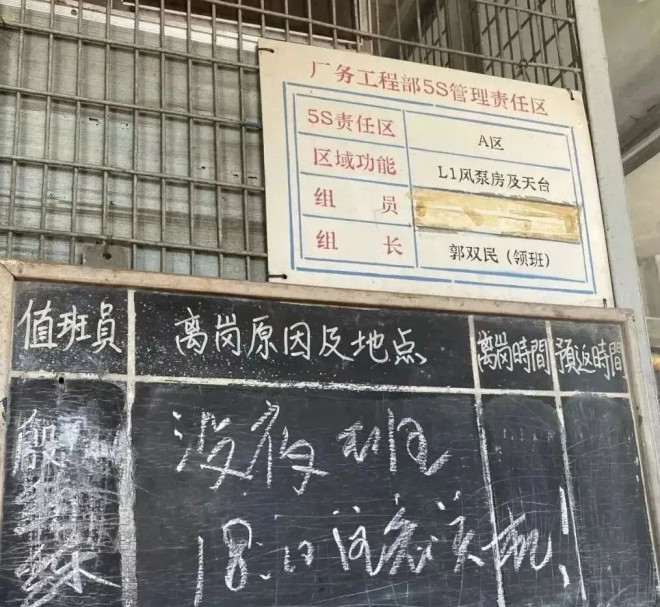 厂务工程部5S管理责任区
5S责任区 A区
区域功能 L1风泵房及天台
组 员
组 长 郭双民(领班)
值班員 离岗原因及地点 离岗時間 预返時間
殷 没夜班
18:00 注意关机!